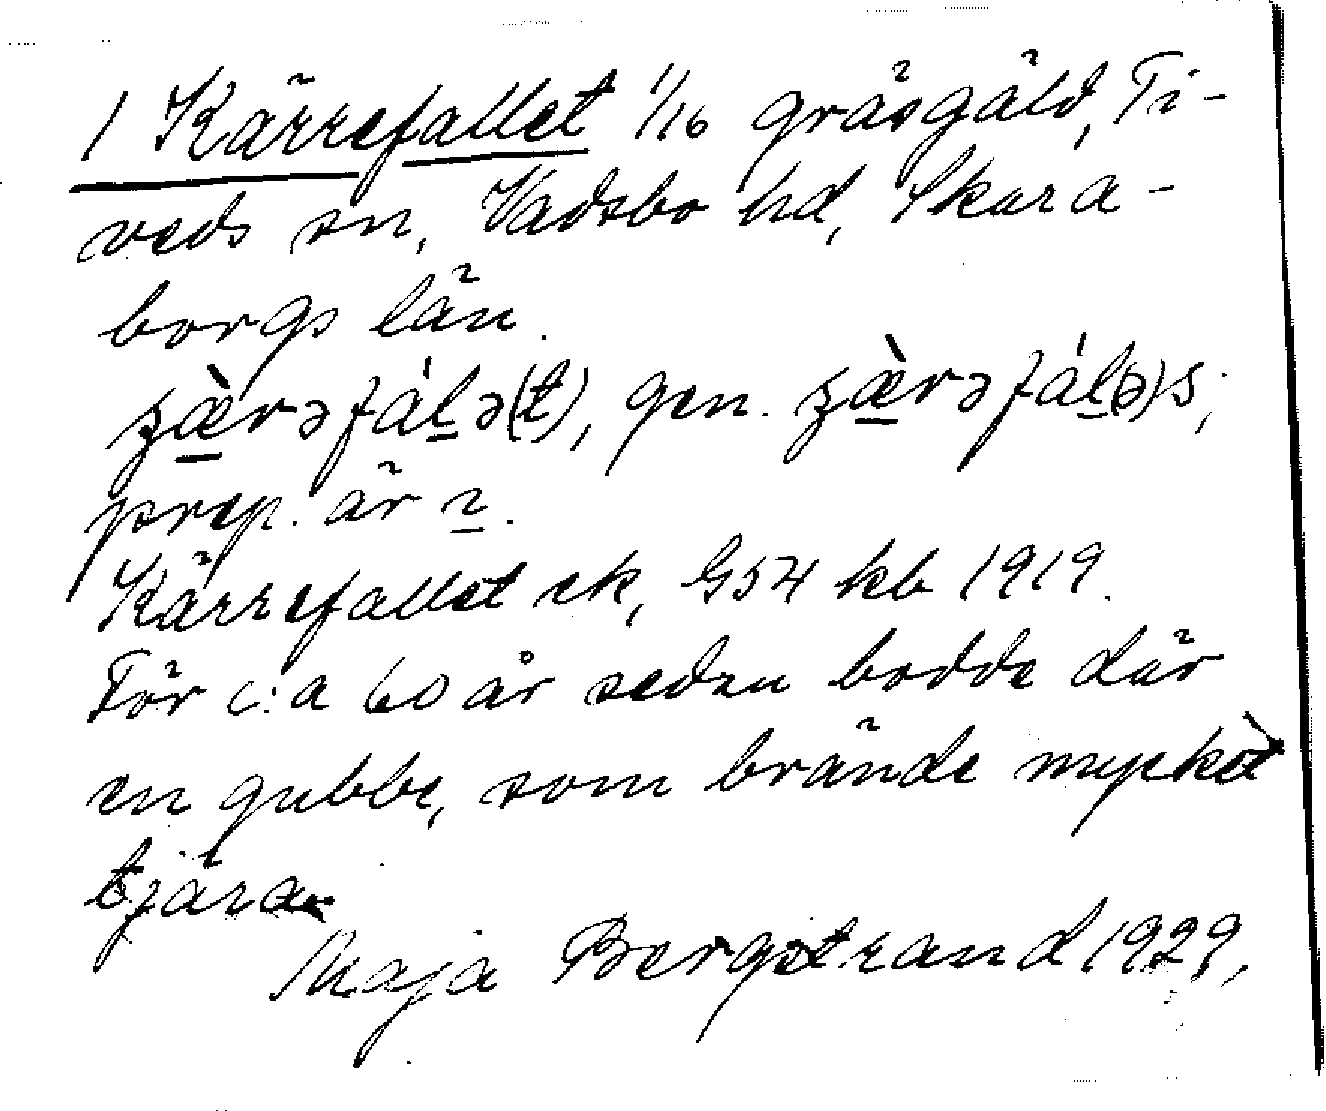 1 Kärrefallet 1/16 gräsgäld, Ti-
veds sn, Vadsbo hd, Skara-
borgs län.
ʒæ̀rəfáḷə(t), gen. ʒæ̀rəfáḷ(ə)s;
prep. är ɩ.
Kärrefallet ek, G54 kb 1919.
För c:a 60 år sedan bodde där
en gubbe, som brände mycket
tjära.
Maja Bergstrand 1929.